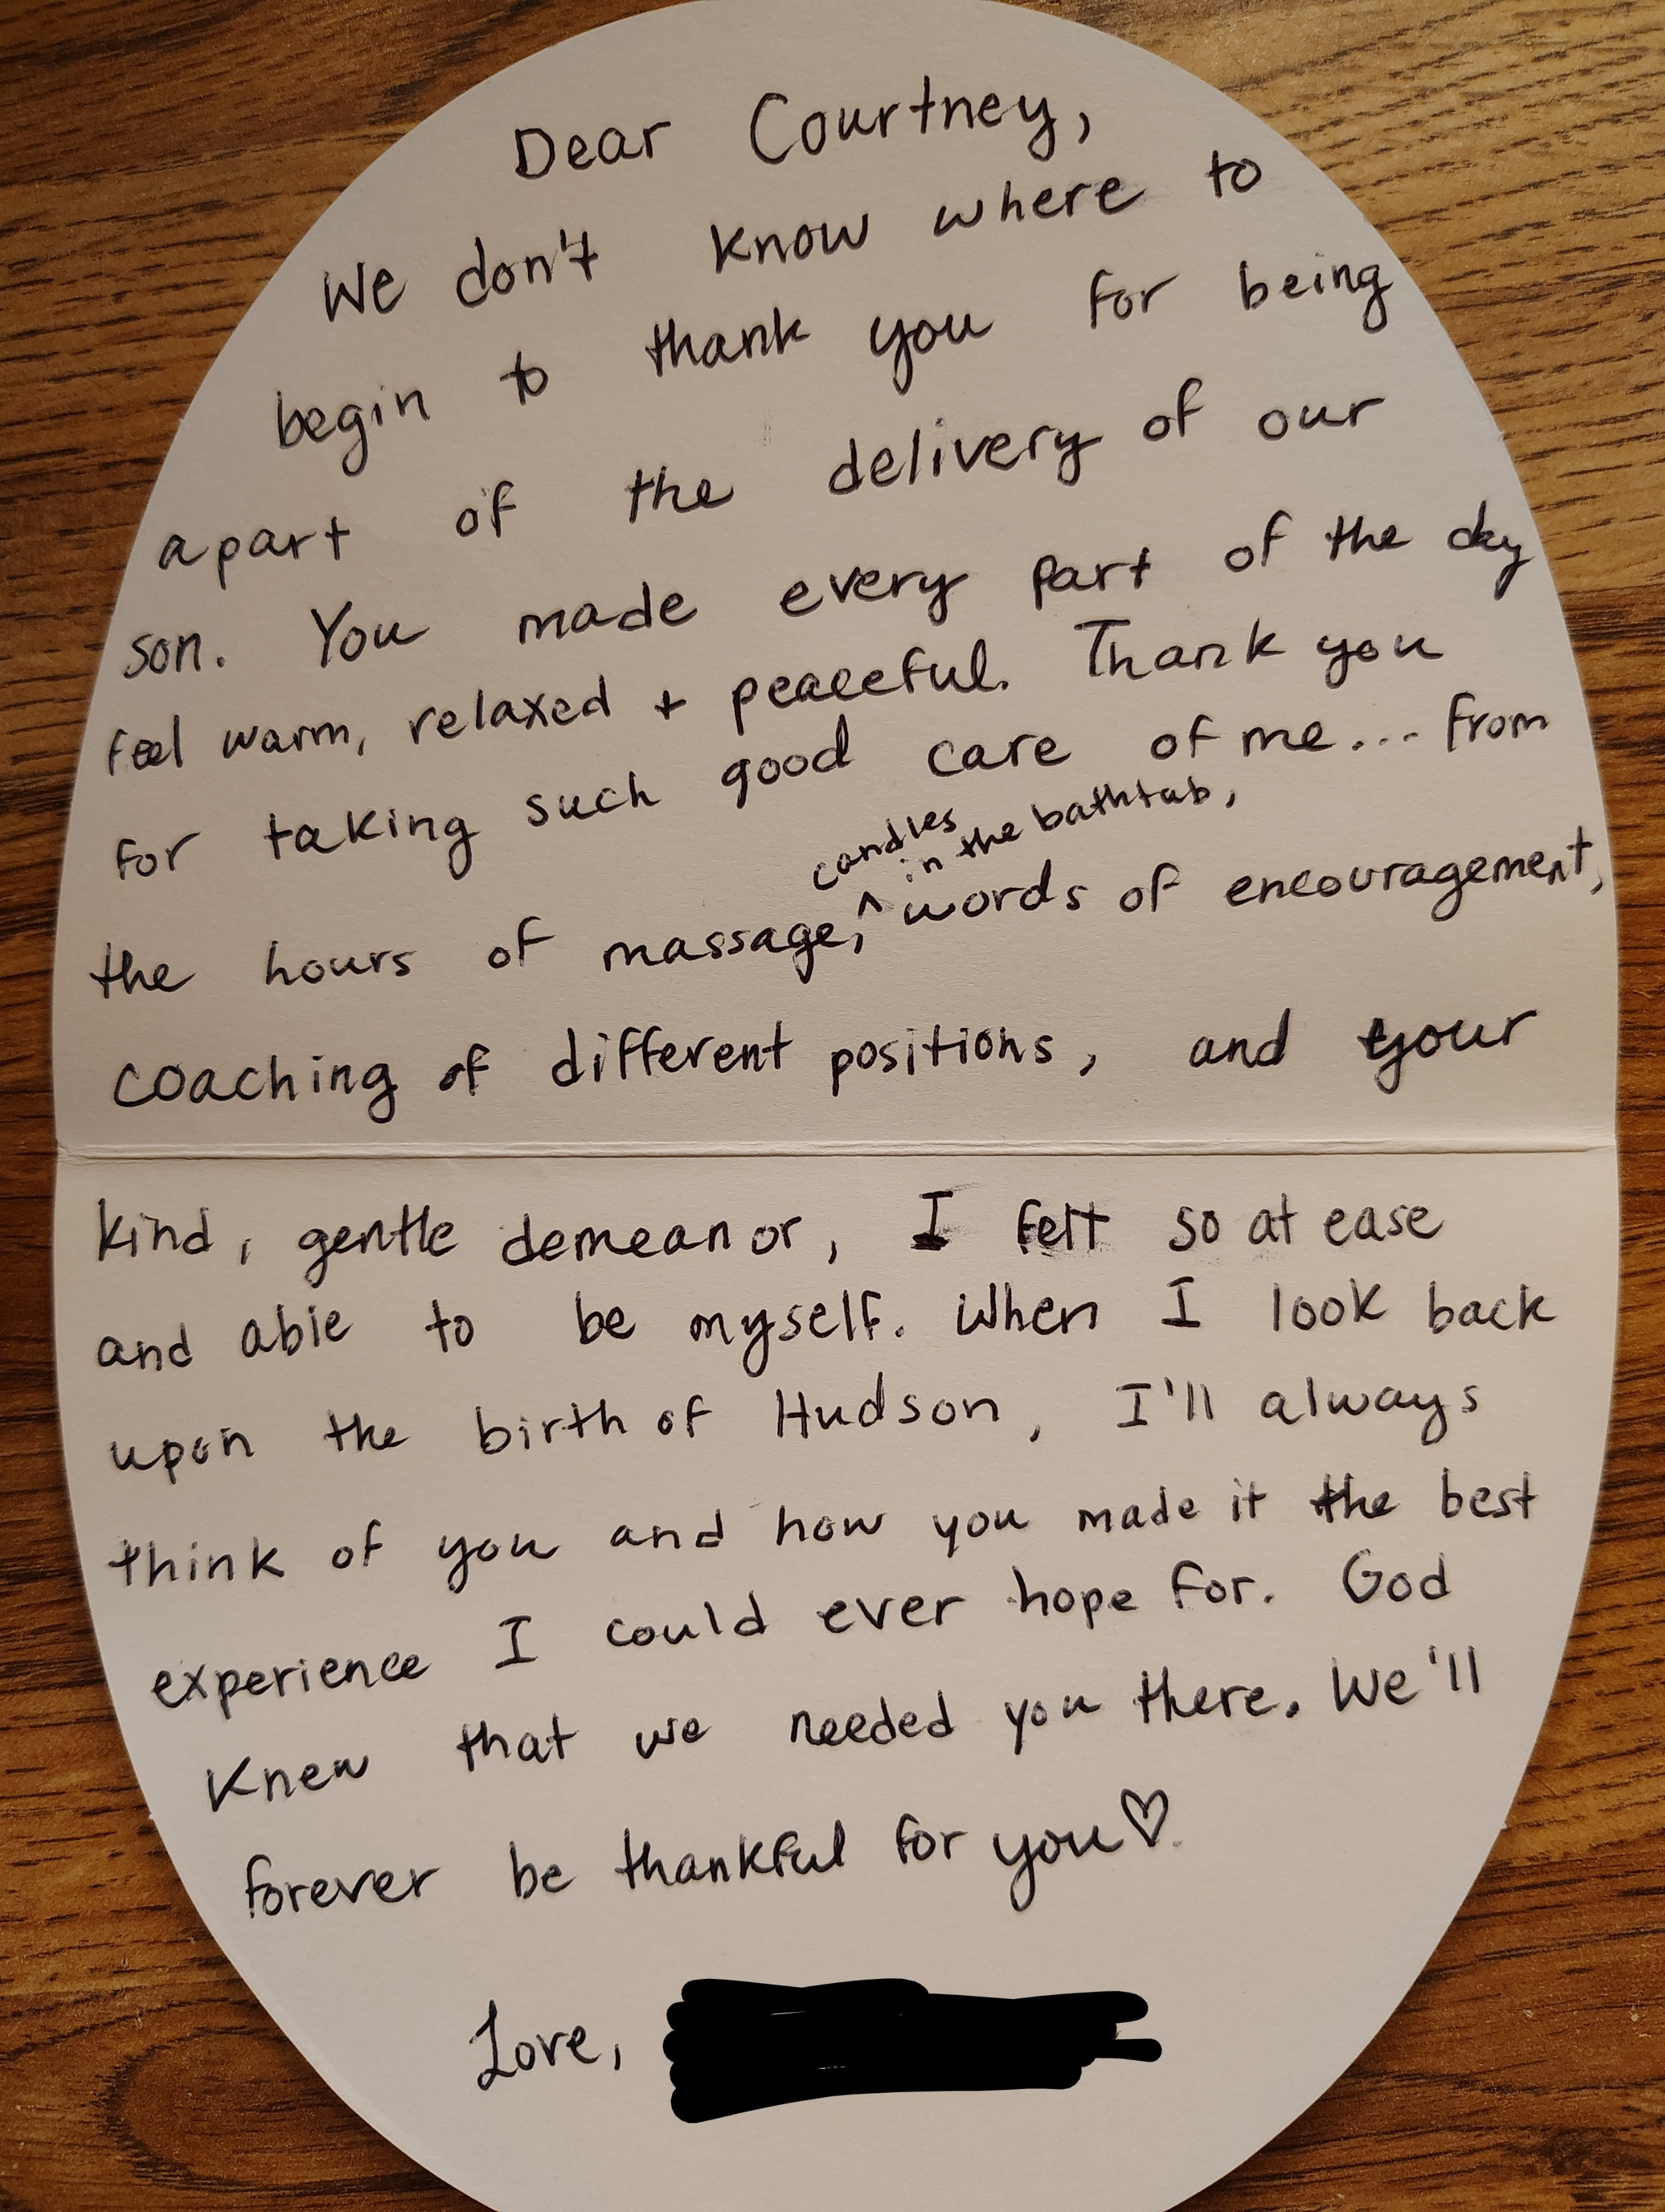 Dear Courtney,
We don't know where to
begin to thank you for being
apart of the delivery of our
son. You made every part of the day
feel warm, relaxed + peaceful. Thank you
for taking such good care of me... from
candles in the bathtub,
the hours of massage, ^ words of encouragement,
coaching of different positions, and your
kind, gentle demeanor, I felt so at ease
and able to be myself. When I look back
upon the birth of Hudson, I'll always
think of you and how you made it the best
experience I could ever hope for. God
knew that we needed you there. We'll
forever be thankful for you♡.
Love,